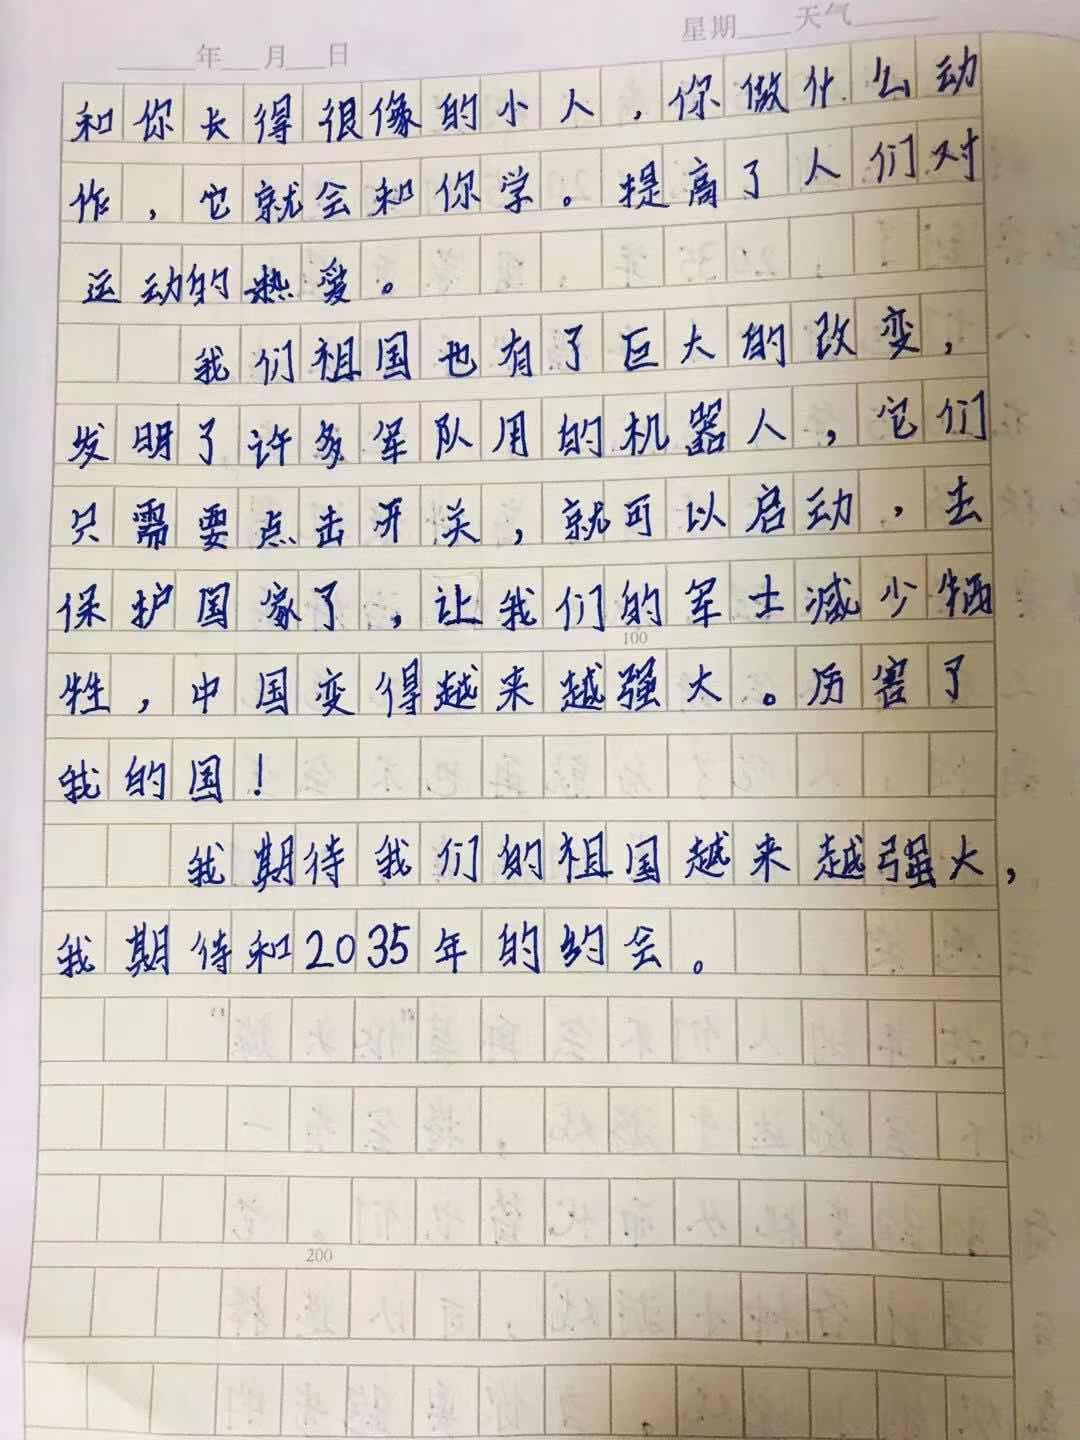 星期____天气____
____年__月__日
和你长得很像的小人，你做什么动
作，它就会和你学。提高了人们对
运动的热爱。
我们祖国也有了巨大的改变，
发明了许多军队用的机器人，它们
只需要点击开关，就可以启动，去
保护国家了，让我们的军士减少牺
100
牲，中国变得越来越强大。厉害了
我的国！
我期待我们的祖国越来越强大，
我期待和2035年的约会。
200